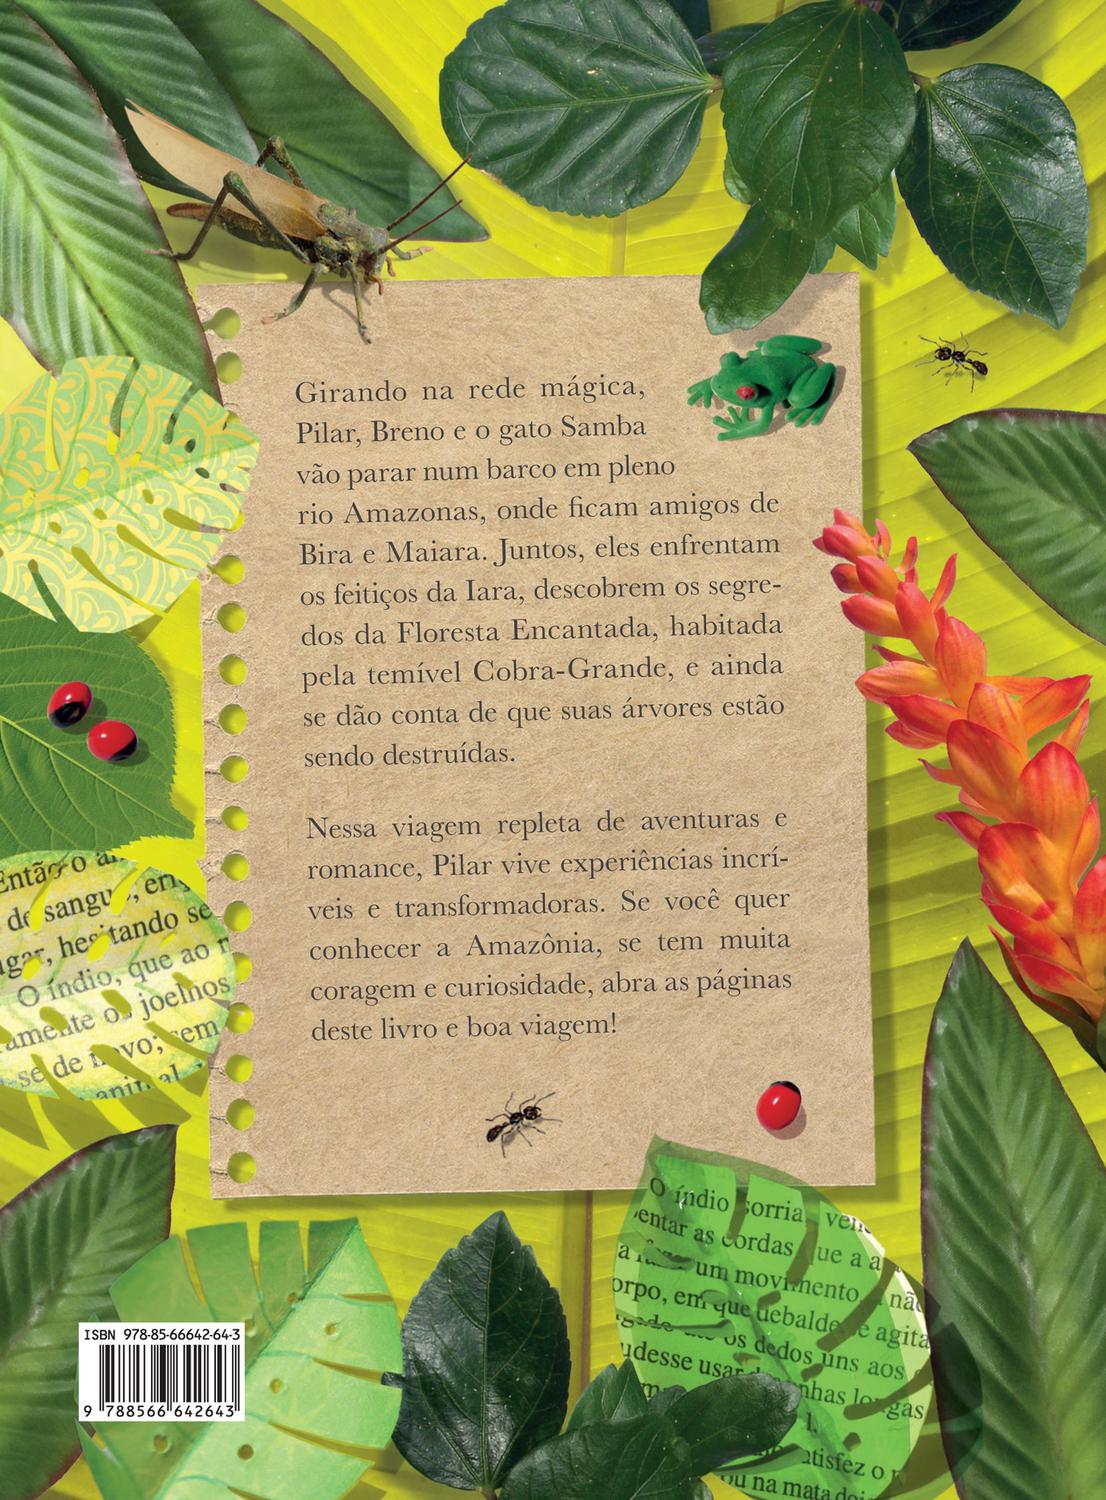 Girando na rede mágica,
Pilar, Breno e o gato Samba
vão parar num barco em pleno
rio Amazonas, onde ficam amigos de
Bira e Maiara. Juntos, eles enfrentam
os feitiços da Iara, descobrem os segre-
dos da Floresta Encantada, habitada
pela temível Cobra-Grande, e ainda
se dão conta de que suas árvores estão
sendo destruídas.
Nessa viagem repleta de aventuras e
romance, Pilar vive experiências incrí-
veis e transformadoras. Se você quer
conhecer a Amazônia, se tem muita
coragem e curiosidade, abra as páginas
deste livro e boa viagem!
Então o
de sangue,
hesitando se
O índio, que ao
os joelhos
-se de novo; sem
animal
O índio sorria,
as cordas que a
um movimento
em que debalde se agita
os dedos uns aos
usar
unhas longas
na mata
ISBN 978-85-66642-64-3
9 788566 642643